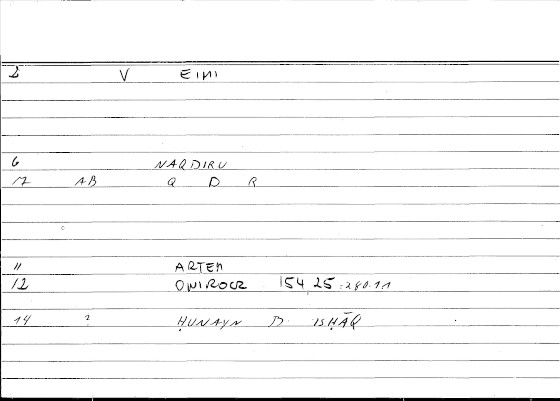 2 V EINI
6 NAQDIRU
12 AB Q D R
11 ARTEM
12 ONIROCR 154,25 = 280.11
14 ? ḤUNAYN B. ISḤĀQ